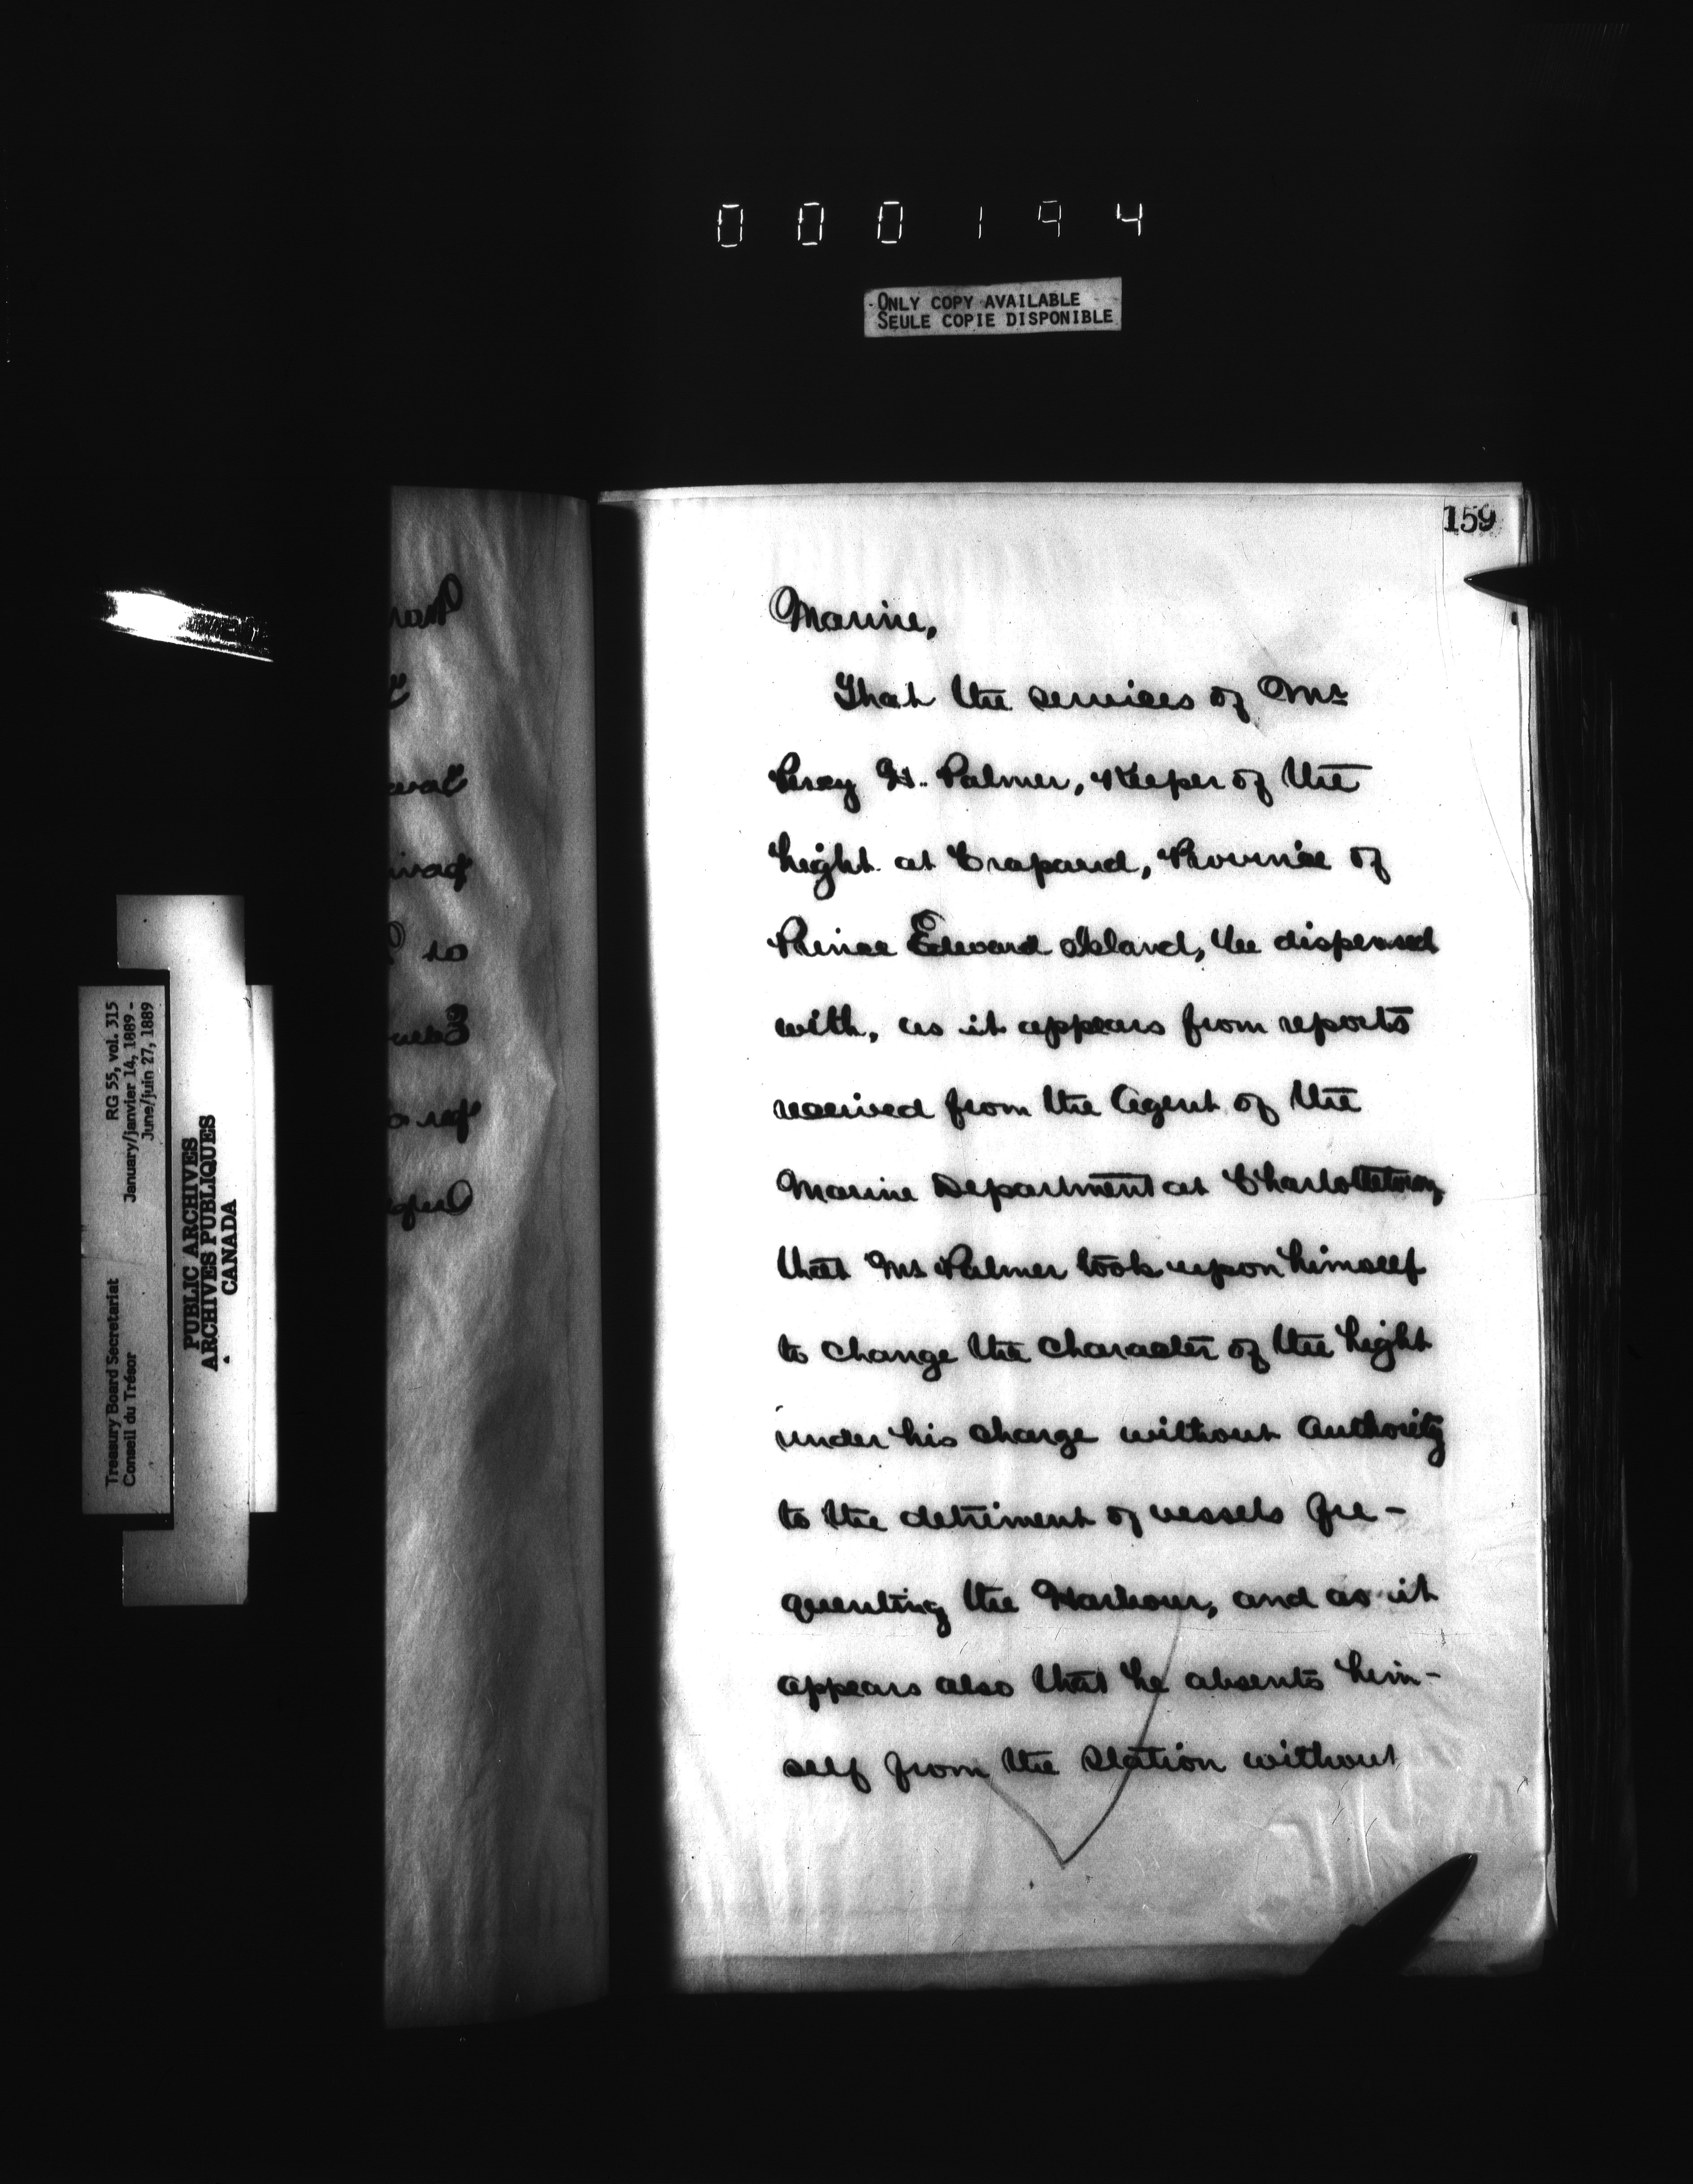 000194
ONLY COPY AVAILABLE
SEULE COPIE DISPONIBLE
159
Marine,
That the services of Mr
Percy H. Palmer, Keeper of the
Light at Crapaud, Province of
Prince Edward Island, be dispensed
with, as it appears from reports
received from the Agent of the
Marine Department at Charlottetown,
that Mr Palmer took upon himself
to change the character of the Light
under his charge without authority
to the detriment of vessels fre-
quenting the Harbour, and as it
appears also that he absents him-
self from the Station without
Treasury Board Secretariat RG 55, vol. 315
Conseil du Trésor January/janvier 14, 1889 -
June/juin 27, 1889
PUBLIC ARCHIVES
ARCHIVES PUBLIQUES
CANADA